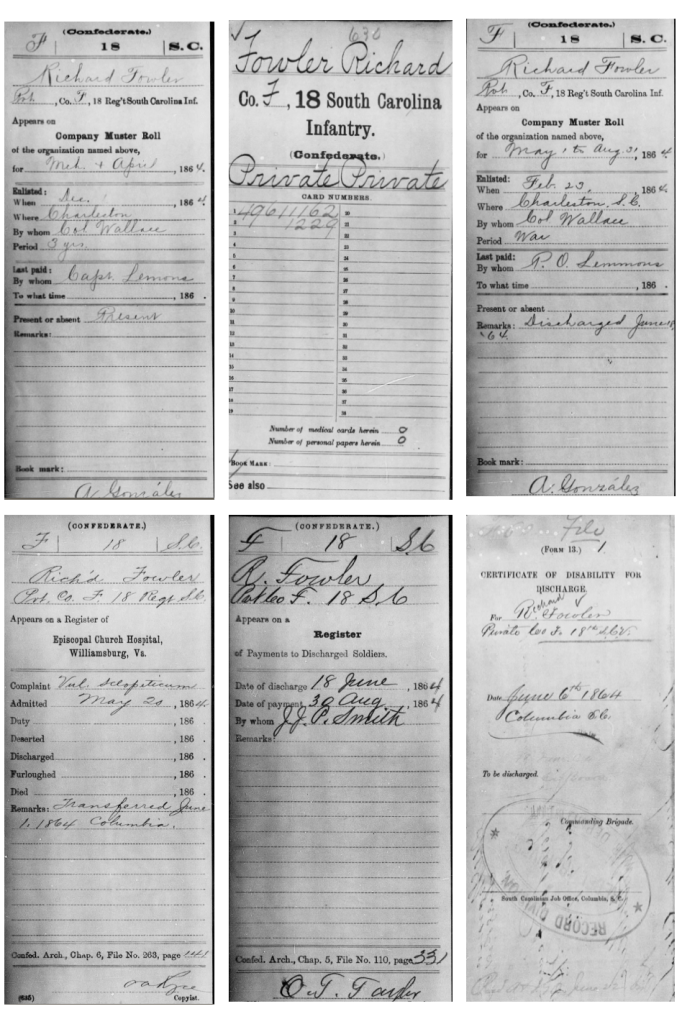 (Confederate.)
F | 18 | S.C.
Richard Fowler
Pvt., Co. F, 18 Reg't South Carolina Inf.
Appears on
Company Muster Roll
of the organization named above,
for Mch. & April, 1864.
Enlisted:
When Dec., 1864
Where Charleston
By whom Col Wallace
Period 3 yrs.
Last paid:
By whom Capt. Lemons
To what time, 186 .
Present or absent Present
Remarks:
Book mark:
A. González
630
Fowler Richard
Co. F, 18 South Carolina
Infantry.
(Confederate.)
Private Private
CARD NUMBERS.
1 49611162 20
2 1229 21
3 22
4 23
5 24
6 25
7 26
8 27
9 28
10 29
11 30
12 31
13 32
14 33
15 34
16 35
17 36
18 37
19 38
Number of medical cards herein 0
Number of personal papers herein 0
BOOK MARK:
See also
(Confederate.)
F | 18 | S.C.
Richard Fowler
Pvt., Co. F, 18 Reg't South Carolina Inf.
Appears on
Company Muster Roll
of the organization named above,
for May 1 to Aug. 31, 1864.
Enlisted:
When Feb. 23, 1864.
Where Charleston, S.C.
By whom Col Wallace
Period War
Last paid:
By whom P. O. Lemmons
To what time, 186 .
Present or absent
Remarks: Discharged June
'64.
Book mark:
A. González
(CONFEDERATE.)
F | 18 | S.C.
Rich'd Fowler
Pvt. Co. F. 18 Regt S.C.
Appears on a Register of
Episcopal Church Hospital,
Williamsburg, Va.
Complaint Vul. Sclopeticum
Admitted May 20, 1864.
Duty, 186 .
Deserted, 186 .
Discharged, 186 .
Furloughed, 186 .
Died, 186 .
Remarks: Transferred June
1, 1864 Columbia.
Confed. Arch., Chap. 6, File No. 263, page
(635) Copyist.
(CONFEDERATE.)
F | 18 | S.C
R. Fowler
Pvt Co F. 18 S.C
Appears on a
Register
of Payments to Discharged Soldiers.
Date of discharge 18 June, 1864
Date of payment 30 Aug, 1864
By whom J. P. Smith
Remarks:
Confed. Arch., Chap. 5, File No. 110, page 331
O. T. Taylor
File
(FORM 13.) 1.
CERTIFICATE OF DISABILITY FOR
DISCHARGE.
Richard
For R. Fowler
Private Co F. 18th S.C.V.
Date June 6th 1864
Columbia S.C.
To be discharged.
Commanding Brigade.
South Carolinian Job Office, Columbia, S. C.
RECORD DIV